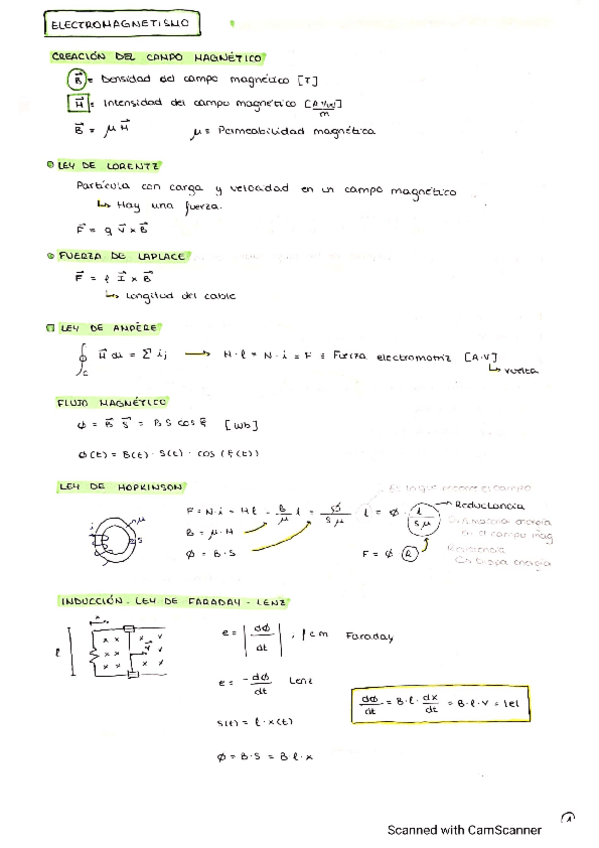 ELECTROMAGNETISMO
CREACIÓN DEL CAMPO MAGNÉTICO
B⃗ = Densidad del campo magnético [T]
H⃗ = Intensidad del campo magnético
B⃗ = μ H⃗    μ = Permeabilidad magnética
LEY DE LORENTZ
Partícula con carga y velocidad en un campo magnético
↳ Hay una fuerza.
F⃗ = q v⃗ x B⃗
FUERZA DE LAPLACE
F⃗ = l I⃗ x B⃗
↳ Longitud del cable
LEY DE AMPÈRE
∮c H⃗ dl = Σ ij → H·l = N·i = F = Fuerza electromotriz [A·V]
↳ vuelta
FLUJO MAGNÉTICO
ϕ = B⃗ S⃗ = B S cos ξ [Wb]
ϕ(t) = B(t) · S(t) · cos (ξ(t))
LEY DE HOPKINSON
Es la que recorre el campo
F = N·i = H l = B/μ l = ϕ/Sμ l = ϕ · l/Sμ → Reluctancia
B = μ·H
ϕ = B·S    F = ϕ R
i μ S
en el campo mag
Resistencia
Disipa energía
INDUCCIÓN. LEY DE FARADAY - LENZ
e = |dϕ/dt| , fem Faraday
e = -dϕ/dt Lenz
dϕ/dt = B·l· dx/dt = B·l·v = |e|
S(t) = l·x(t)
ϕ = B·S = B l·x
1
Scanned with CamScanner